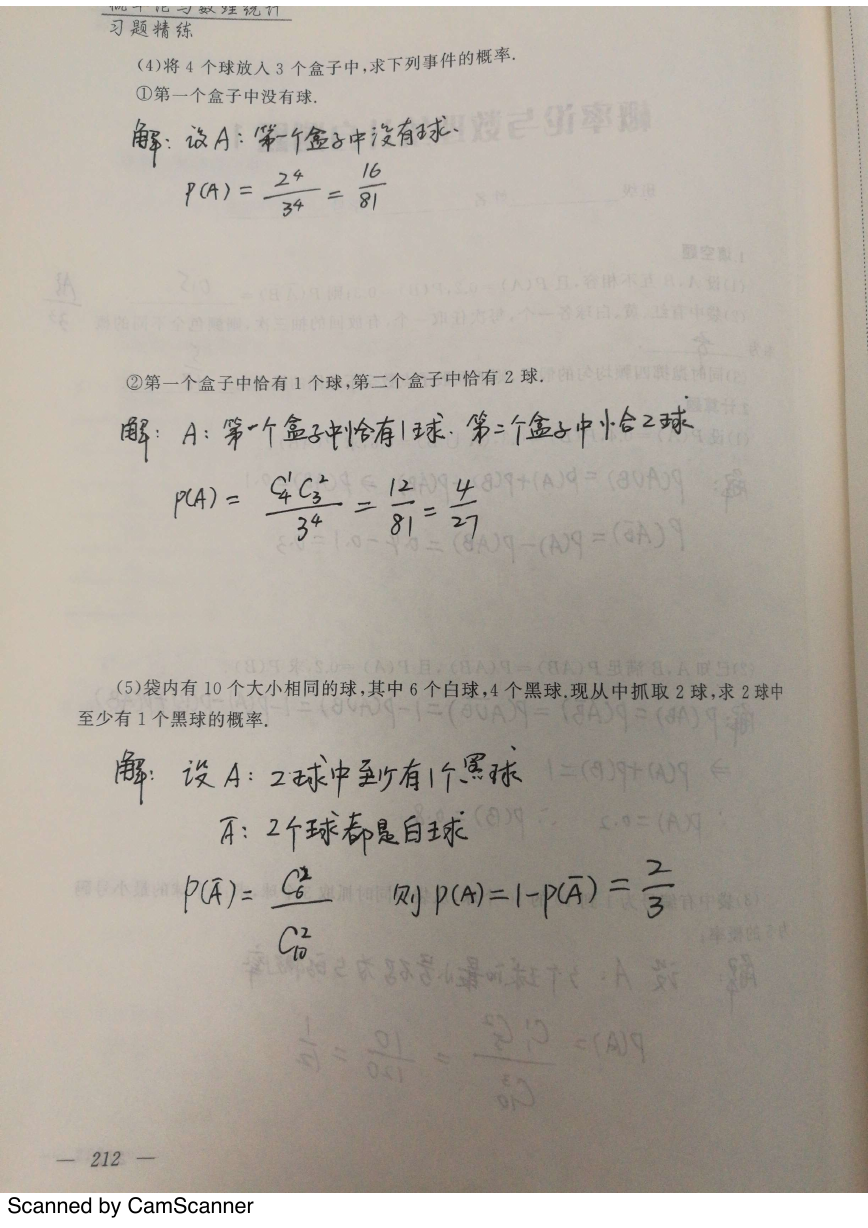 概率论与数理统计
习题精练
(4)将 4 个球放入 3 个盒子中,求下列事件的概率.
①第一个盒子中没有球.
解: 设 A: 第一个盒子中没有球.
P(A) = 2^4/3^4 = 16/81
②第一个盒子中恰有 1 个球,第二个盒子中恰有 2 球.
解: A: 第一个盒子中恰有1球. 第二个盒子中恰2球
P(A) = C_4^1 C_3^2/3^4 = 12/81 = 4/27
(5)袋内有 10 个大小相同的球,其中 6 个白球,4 个黑球.现从中抓取 2 球,求 2 球中
至少有 1 个黑球的概率.
解: 设 A: 2球中至少有1个黑球
A̅: 2个球都是白球
P(A̅) = C_6^2/C_10^2 则 P(A) = 1-P(A̅) = 2/3
— 212 —
Scanned by CamScanner